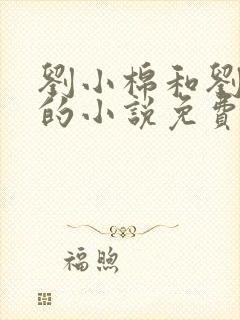 劉小棉和劉
的小說免費
福煦